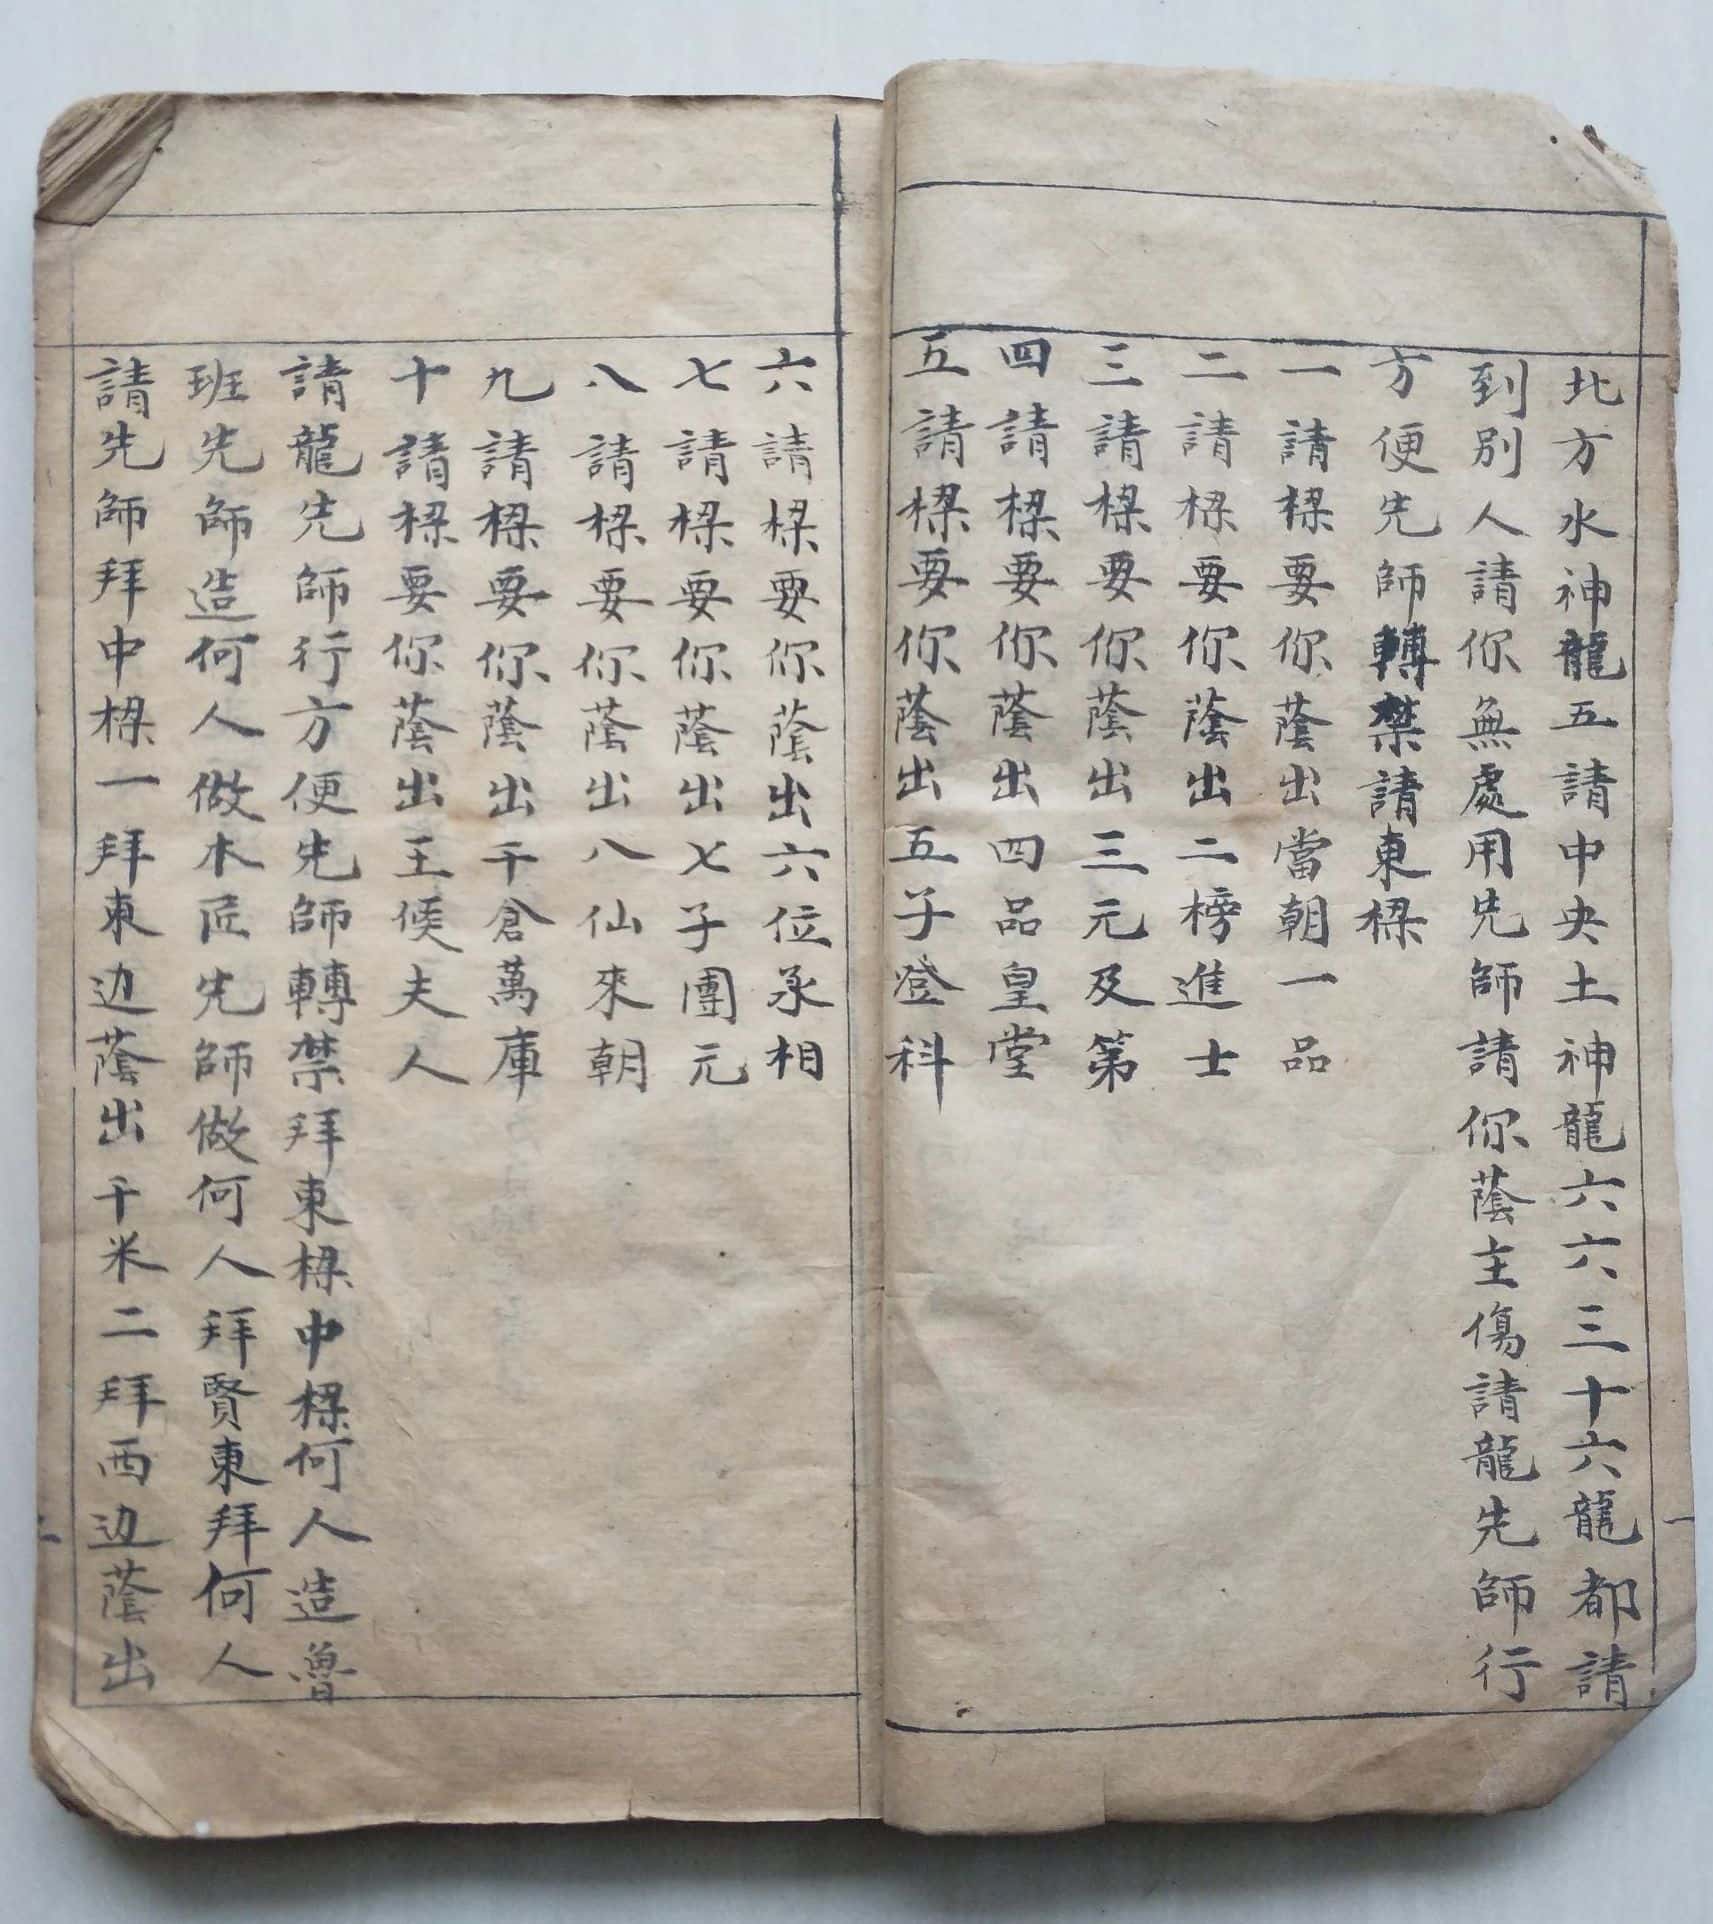 北方水神龍五請中央土神龍六六三十六龍都請
到别人請你無處用先師請你蔭主傷請龍先師行
方便先師轉禁請東樑
一請樑要你蔭出當朝一品
二請樑要你蔭出二榜進士
三請樑要你蔭出三元及第
四請樑要你蔭出四品皇堂
五請樑要你蔭出五子登科
一
六請樑要你蔭出六位丞相
七請樑要你蔭出七子團元
八請樑要你蔭出八仙來朝
九請樑要你蔭出千倉萬庫
十請樑要你蔭出王侯夫人
請龍先師行方便先師轉禁拜東樑中樑何人造魯
班先師造何人做木匠先師做何人拜賢東拜何人
請先師拜中樑一拜東边蔭出千米二拜西边蔭出